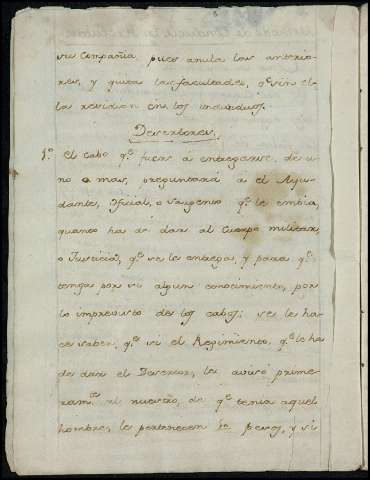 su Compañia, pues anula las anterio-
res, y quita las facultades, q.e sin el-
la residian en los individuos.
Desertores.
1.º el cabo q.e fuere á entregarse, de u-
no o mas, preguntará á el Ayu-
dante, Oficial, o Sargento q.e le embia,
quanto ha de dar al Cuerpo militar,
o Justicia, q.e se le entrega, y para q.e
tenga por si algun conocimiento, por
lo imprevisto de los cabos: se le ha-
ce saber, q.e si el Regimiento, q.e le ha
de dar el Desertor, les avisó primé-
ram.te al nuestro, de q.e tenia aquel
hombre, le pertenecen pesos, y si